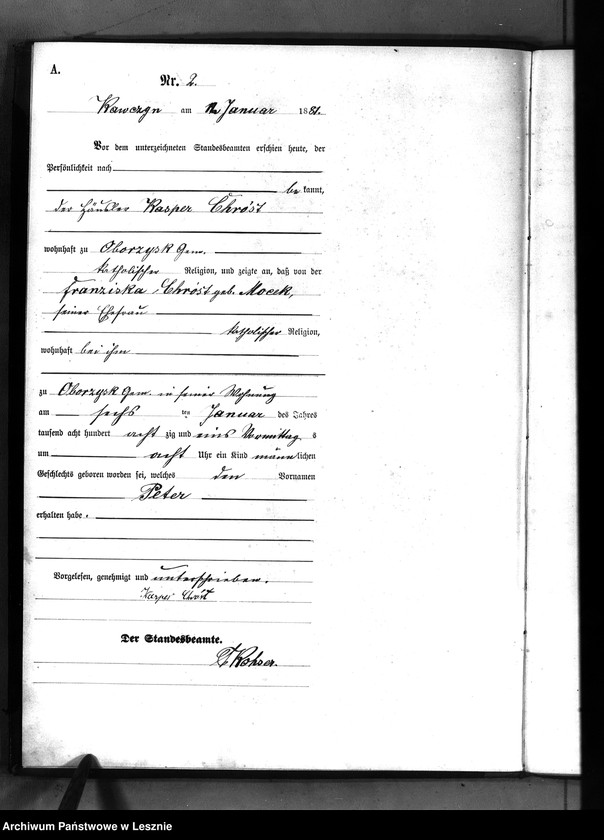 A.
Nr. 2.
Kawczyn am Januar 1881.
Vor dem unterzeichneten Standesbeamten erschien heute, der
Persönlichkeit nach
be kannt,
der Häusler Kasper Chróst
wohnhaft zu Oborzysk Gem.
katholischer Religion, und zeigte an, daß von der
Franziska Chróst geb. Mocek,
seiner Ehefrau
katholischer Religion,
wohnhaft bei ihm
zu Oborzysk Gem. in seiner Wohnung
am sechs ten Januar des Jahres
tausend acht hundert acht zig und eins Vormittag s
um acht Uhr ein Kind männ lichen
Geschlechts geboren worden sei, welches den Vornamen
Peter
erhalten habe.
Vorgelesen, genehmigt und unterschrieben.
Kasper Chróst
Der Standesbeamte.
Archiwum Państwowe w Lesznie